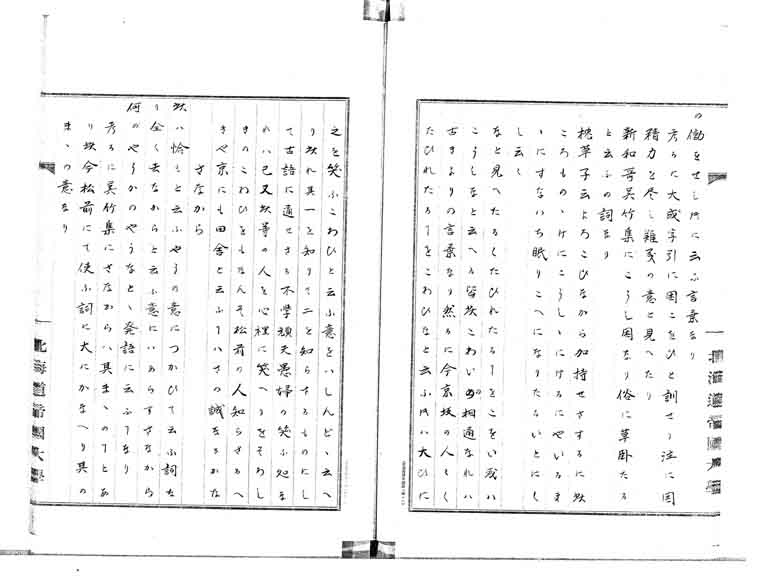 の働をせし時に云ふ言葉なり
考るに大成字引に困こをひと訓せり注に困
精力を尽し難受の意と見へたり
新和等呉竹集にこうし困なり俗に草臥たる
と云ふの詞なり
枕草子云よろこひなから加持せさするに此
ころものゝけにこうしゝにけるにやいるま
ゝにすないち眠りこへになりたるいとにく
し云々
なと見へたるくたひれたるをこをい或ハ
こうしなと云へる皆此こわいの相通なれハ
古きよりの言葉なり然るに今京坂の人もく
たひれたるをこわひなと云ふ時ハ大ひに
之を笑ふこわひと云ふ意をいしんとゝ云へ
り此れ其一を知りて二を知らさるものにし
て古語に通せさる不学頑夫愚婦の笑ふ処な
れハ己又此等の人を心裡に笑へりをそわし
きのこわひをもなんそ松前の人知らさるへ
きや京にも田舎と云ふてハさの誠をるかな
さなから
此ハ恰もと云ふやうの意につかひて云ふ詞な
り全く云なからと云ふ意にハあらすさなから
何のやうかのやうなとゝ発語に云ふてなり
考るに呉竹集にさなからハ其まゝのてとあ
り此今松前にて使ふ詞に大にかなへり其の
まゝの意なり
北海道帝国大学
北海道帝国大学